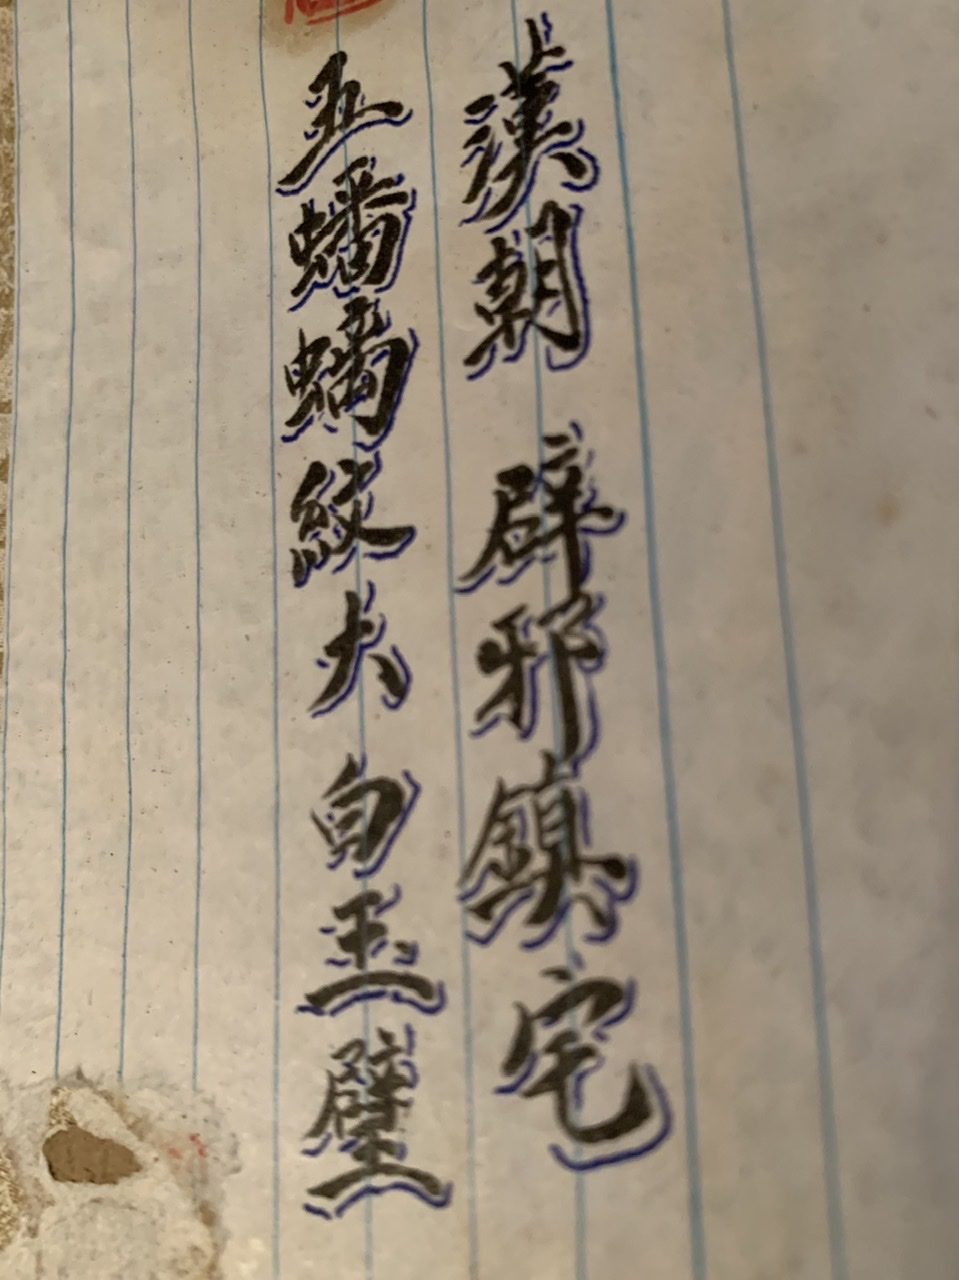 漢朝 辟邪鎮宅
五蟠螭紋大白玉璧